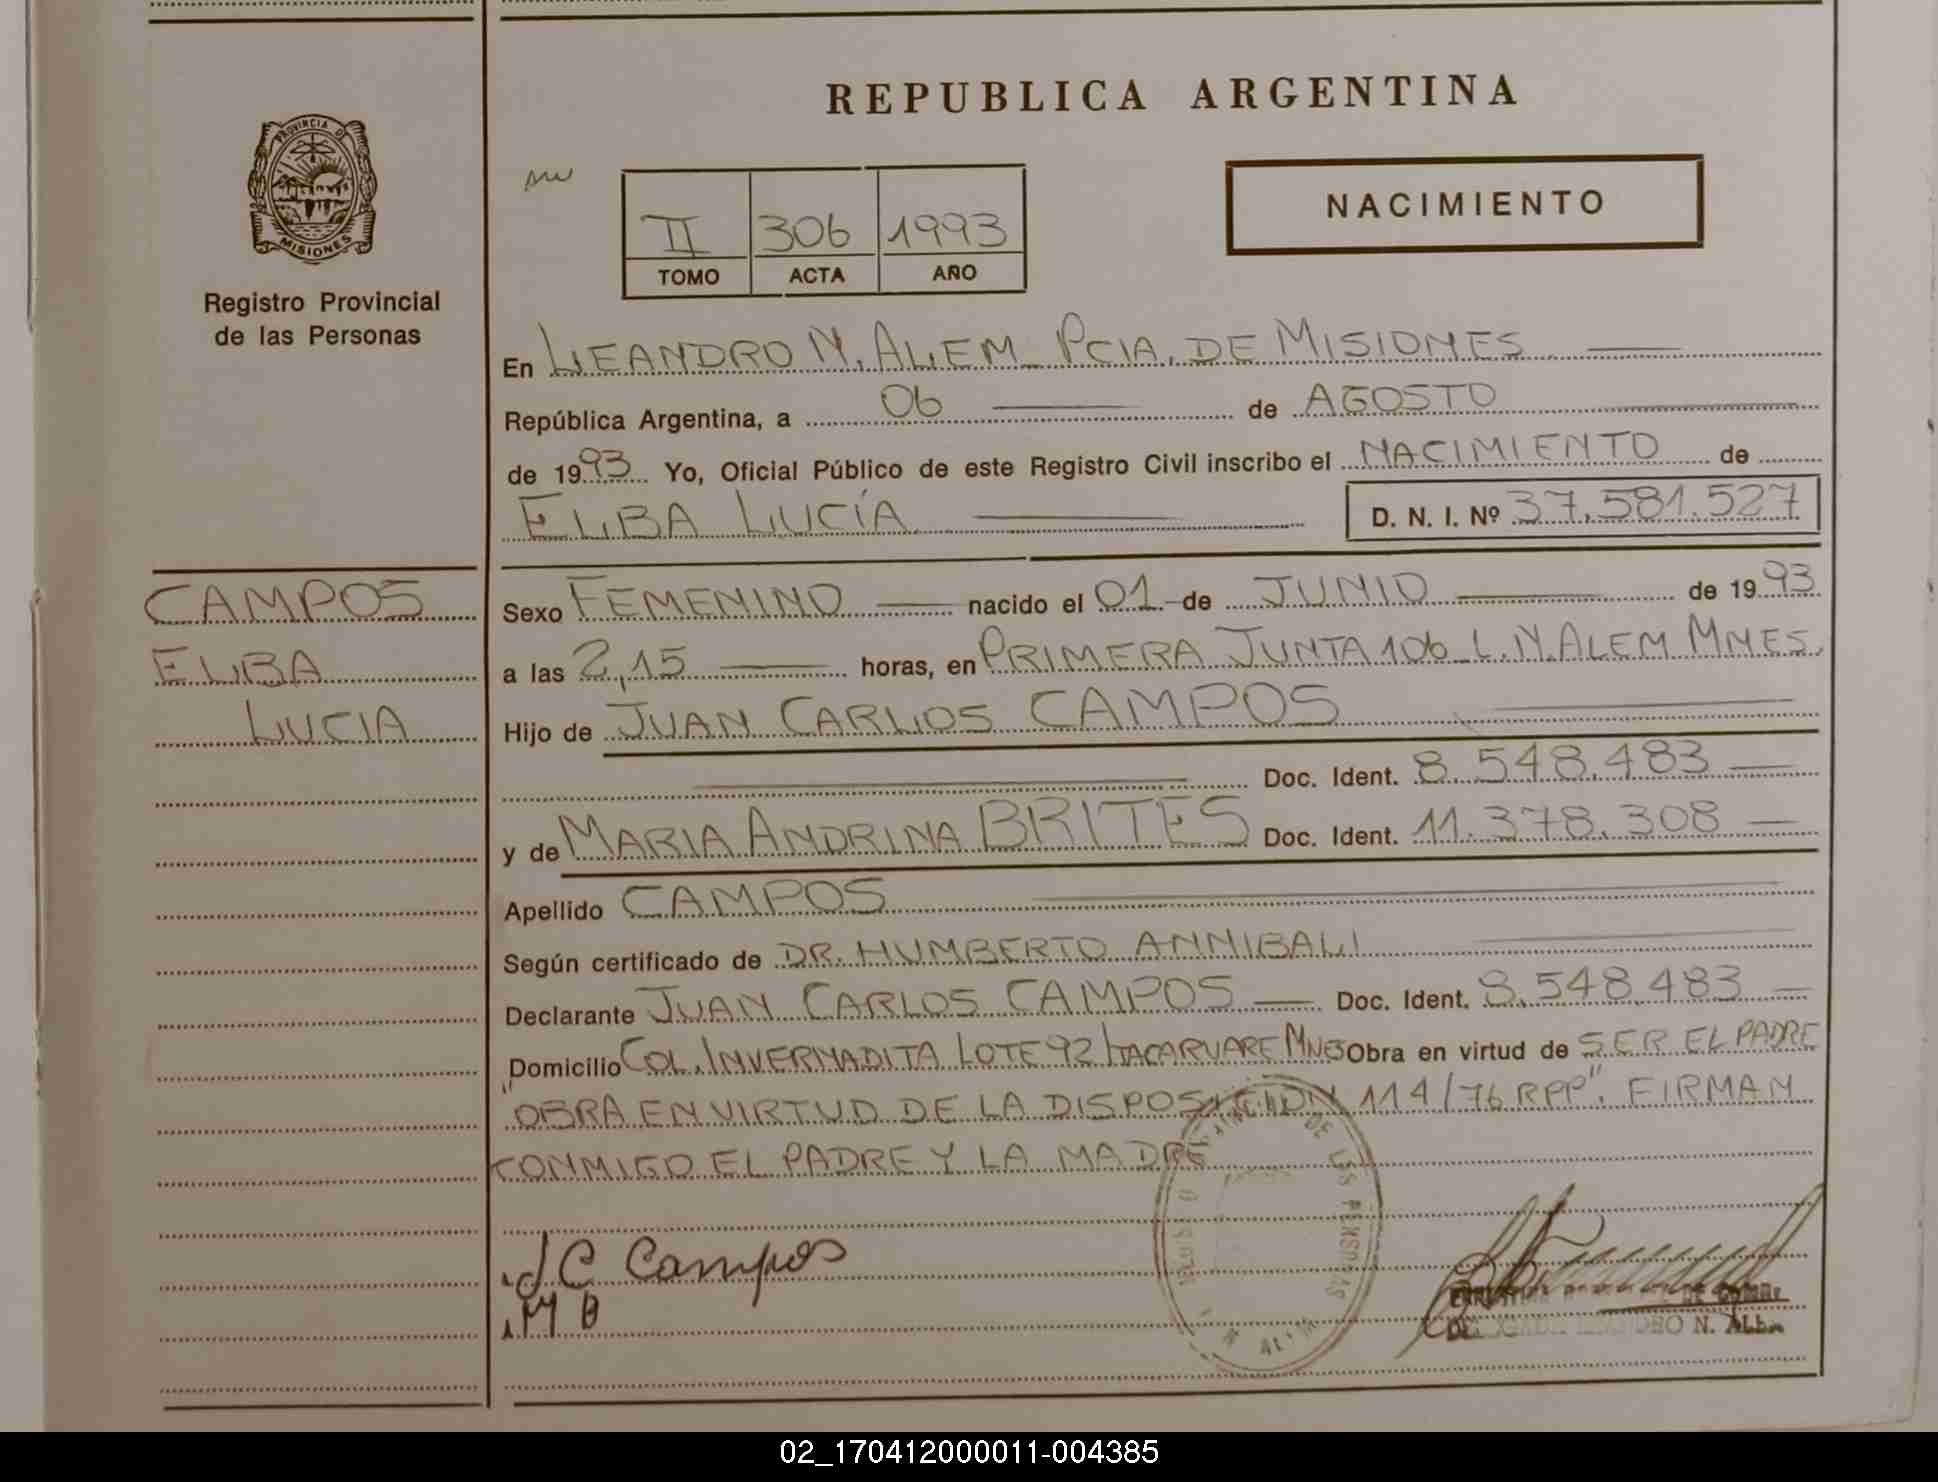 PROVINCIA D
MISIONES
Registro Provincial
de las Personas
CAMPOS
ELBA
LUCIA
REPUBLICA ARGENTINA
II 306 1993
TOMO ACTA AÑO
NACIMIENTO
En LEANDRO N. ALEM PCIA. DE MISIONES
República Argentina, a 06 de AGOSTO
de 1993 Yo, Oficial Público de este Registro Civil inscribo el NACIMIENTO de
ELBA LUCÍA D. N. I. Nº 37.581.527
Sexo FEMENINO nacido el 01 de JUNIO de 1993
a las 2,15 horas, en PRIMERA JUNTA 106 L.N.ALEM MNES.
Hijo de JUAN CARLOS CAMPOS
Doc. Ident. 8.548.483
y de MARIA ANDRINA BRITES Doc. Ident. 11.378.308
Apellido CAMPOS
Según certificado de DR. HUMBERTO ANNIBALI
Declarante JUAN CARLOS CAMPOS Doc. Ident. 8.548.483
Domicilio COL. INVERNADITA LOTE 92 ITACARUARE MNES Obra en virtud de SER EL PADRE
"OBRA EN VIRTUD DE LA DISPOSICION 114/76 RPP". FIRMAN
CONMIGO EL PADRE Y LA MADRE
J C Campos
M B
DE LAS PERSONAS
N. ALEM
02_170412000011-004385